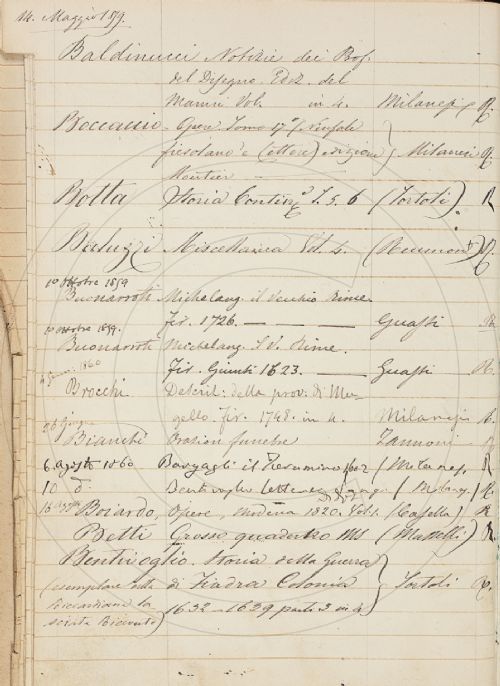 14. Maggio 1859.
Baldinucci Notizie dei Prof.
del Disegno. Ediz. del
Manni Vol. in 4. Milanesi R.
Boccaccio - Opere Tomo 17° (Ninfale
fiesolano e lettere) edizione Milanesi R.
Moutier
Botta Storia Contin. T. 5. 6 (Tortoli). R
Baluzzi - Miscellanea Vol. 4. (Reumont) R.
10 ottobre 1859
Buonarroti Michelang. il Vecchio Rime.
Fir. 1726. — — — Guasti R.
10 ottobre 1859.
Buonarroti Michelang. Rime.
Fir. Giunti 1623. — Guasti R.
1860
Brocchi Descriz: della prov. di Mu-
gello. Fir. 1748. in 4. Milanesi R.
26 Giugno
Bianchi Orazion funebre Zannoni
6 agosto 1860 Bargagli il Turamino 1602 (Milanesi, R
10 d° Bentivoglio Lettere (Milanes.) R
Boiardo, Opere, Modena 1820. (Casella) R
Betti Grosso quaderno Ms (Musselli) R.
Bentivoglio. Storia della Guerra
(esemplare della di Fiandra Colonia Tortoli R.
Riccardiana la 1632 - 1639 parti 3 in 4
sciata Ricevuto)